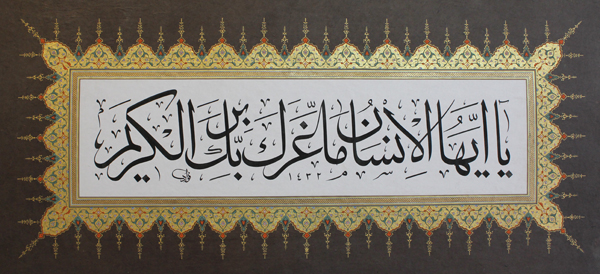 يَا أَيُّهَا الْإِنْسَانُ مَا غَرَّكَ بِرَبِّكَ الْكَرِيمِ
١٤٣٢